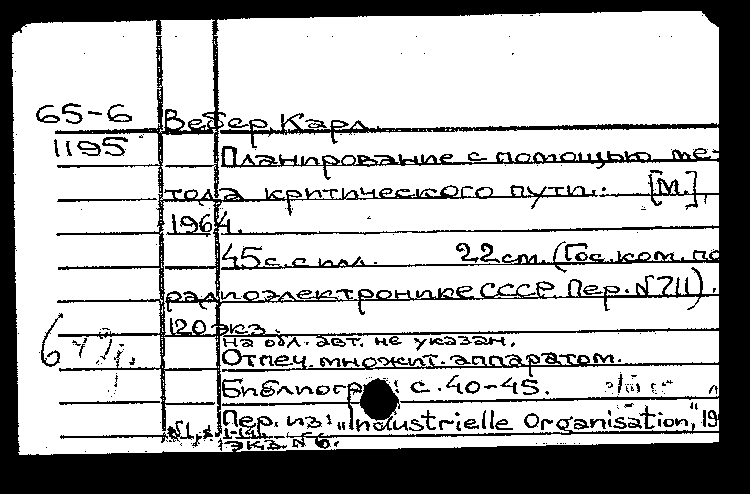 65-6 Вебер, Карл.
1195
Планирование с помощью ме-
тода критического пути. [М.],
1964.
45 с. с илл. 22 см. (Гос. ком. по
радиоэлектронике СССР. Пер. № 711).
120 экз.
На обл. авт. не указан.
Отпеч. множит. аппаратом.
Библиогр.: с. 40-45.
Пер. из: „Industrielle Organisation," 19
экз. № 6.